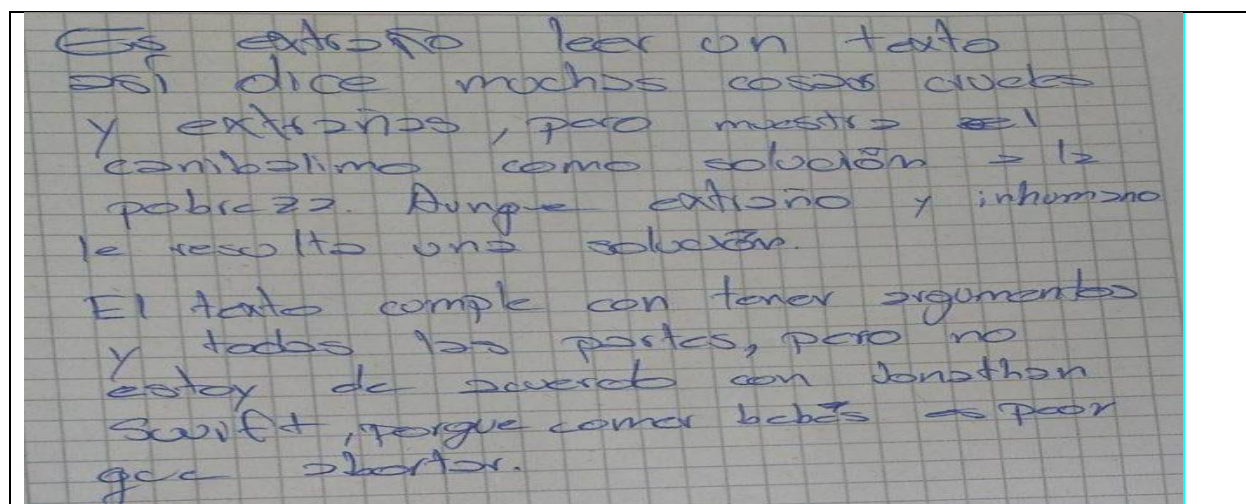 Es extraño leer un texto
así dice muchas cosas crueles
y extrañas, pero muestra el
canibalimo como solución a la
pobreza. Aunque extraño y inhumano
le resulta una solución.
El texto cumple con tener argumentos
y todas las partes, pero no
estoy de acuerdo con Jonathan
Swift, porque comer bebés es peor
que abortar.